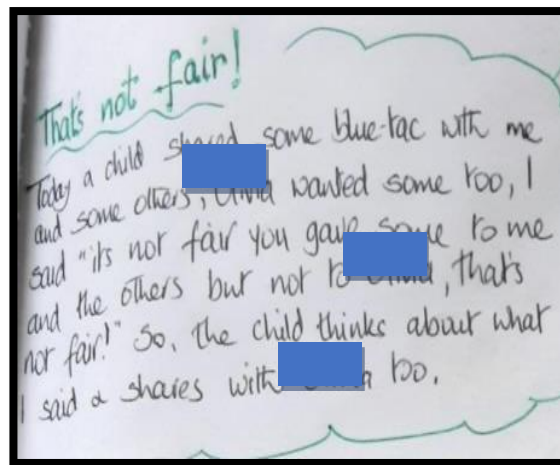 That's not fair!
Today a child shared some blue-tac with me
and some others, wanted some too, I
said "it's not fair you gave some to me
and the others but not to , that's
not fair!" So, the child thinks about what
I said & shares with too.